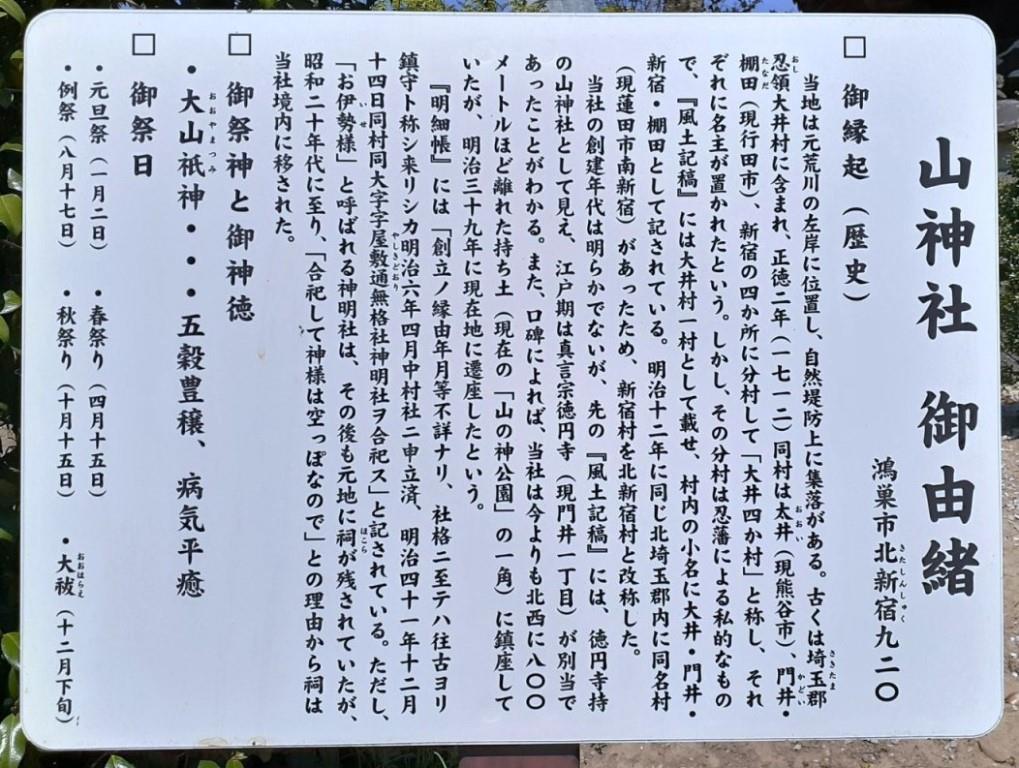 山神社 御由緒
鴻巣市北新宿九二〇
□ 御縁起（歴史）
当地は元荒川の左岸に位置し、自然堤防上に集落がある。古くは埼玉郡
忍領大井村に含まれ、正徳二年（一七一二）同村は太井（現熊谷市）、門井・
棚田（現行田市）、新宿の四か所に分村して「大井四か村」と称し、それ
ぞれに名主が置かれたという。しかし、その分村は忍藩による私的なもの
で、『風土記稿』には大井村一村として載せ、村内の小名に大井・門井・
新宿・棚田として記されている。明治十二年に同じ北埼玉郡内に同名村
（現蓮田市南新宿）があったため、新宿村を北新宿村と改称した。
当社の創建年代は明らかでないが、先の『風土記稿』には、徳円寺持
の山神社として見え、江戸期は真言宗徳円寺（現門井一丁目）が別当で
あったことがわかる。また、口碑によれば、当社は今よりも北西に八〇〇
メートルほど離れた持ち土（現在の「山の神公園」の一角）に鎮座して
いたが、明治三十九年に現在地に遷座したという。
『明細帳』には「創立ノ縁由年月等不詳ナリ、社格二至テハ往古ヨリ
鎮守ト称シ来リシカ明治六年四月中村社二申立済、明治四十一年十二月
十四日同村同大字字屋敷通無格社神明社ヲ合祀ス」と記されている。ただし、
「お伊勢様」と呼ばれる神明社は、その後も元地に祠が残されていたが、
昭和二十年代に至り、「合祀して神様は空っぽなので」との理由から祠は
当社境内に移された。
□ 御祭神と御神徳
・大山祇神・・・五穀豊穣、病気平癒
□ 御祭日
・元旦祭（一月二日） ・春祭り（四月十五日）
・例祭（八月十七日） ・秋祭り（十月十五日） ・大祓（十二月下旬）